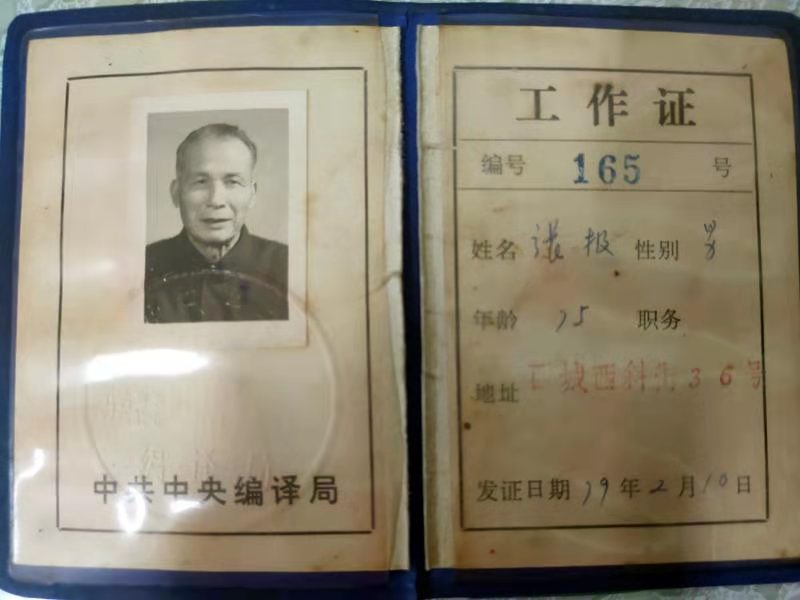 中共中央编译局
工作证
编号 165 号
姓名 张报 性别 男
年龄 75 职务
地址 西斜街36号
发证日期 79年2月10日